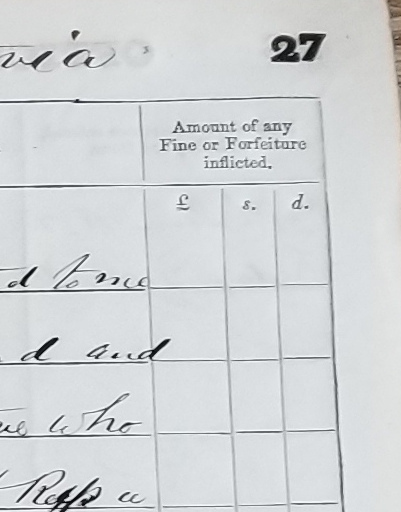 27
Amount of any
Fine or Forfeiture
inflicted.
£ s. d.
d to me
d and
who
a